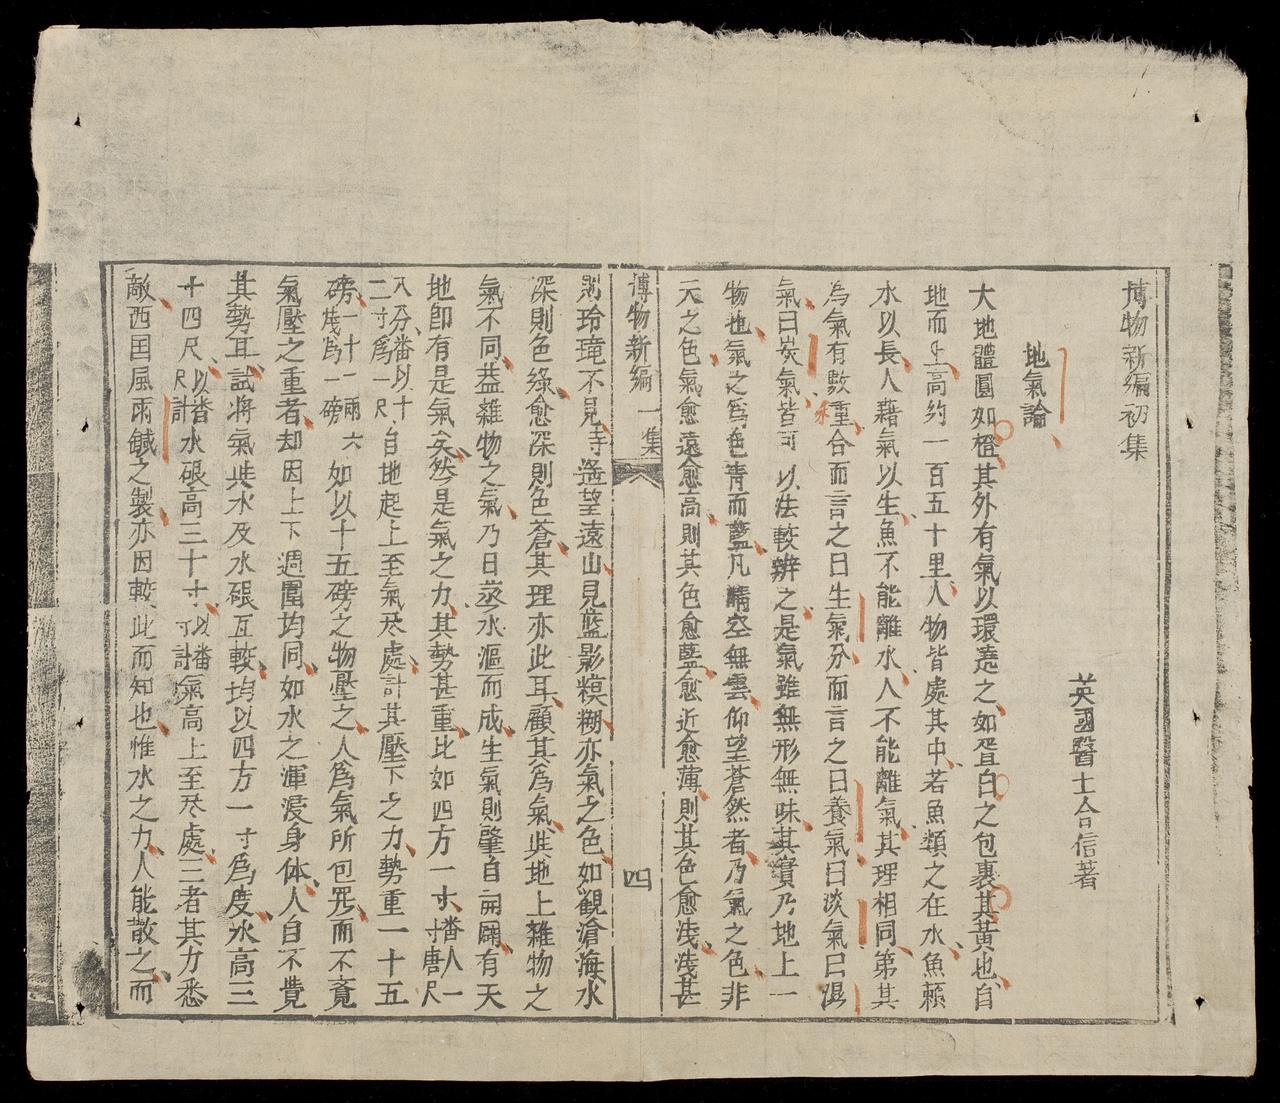 博物新編初集
英國醫士合信著
地氣論
大地體圓如橙其外有氣以環遶之如蛋白之包裹其黃也自
地而上高約一百五十里人物皆處其中若魚類之在水魚賴
水以長人藉氣以生魚不能離水人不能離氣其理相同第其
為氣有數重合而言之曰生氣分而言之曰養氣曰淡氣曰濕
氣曰炭氣皆可以法較辨之是氣雖無形無味其實乃地上一
物也氣之爲色青而藍凡晴空無雲仰望蒼然者乃氣之色非
天之色氣愈遠愈高則其色愈藍愈近愈薄則其色愈浅浅甚
博物新編 一集 四
則玲瓏不見、遙望遠山見藍影糢糊亦氣之色如觀滄海水
深則色綠愈深則色蒼其理亦此耳顧其為氣與地上雜物之
氣不同葢雜物之氣乃日蒸水漚而成生氣則肇自開闢有天
地卽有是氣矣然是氣之力其勢甚重比如四方一寸番人一寸唐尺
八分番以十二寸爲一尺自地起上至氣尽處計其壓下之力勢重一十五
磅一十二兩六錢爲一磅如以十五磅之物壓之人爲氣所包罗而不覔
氣壓之重者却因上下週圍均同如水之渾浸身体人自不覺
其勢耳試將氣與水及水銀互較均以四方一寸爲度水高三
十四尺以番尺計水銀高三十寸以番寸計氣高上至尽處三者其力悉
敵西国風雨鍼之製亦因較此而知也惟水之力人能散之而